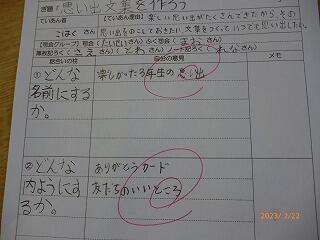 ぎ題 「思い出文集を作ろう
ていあん者
【ていあん理由】楽しい思い出がたくさんできたから、その
こはく さん
思い出をのこしておきたい。文集をつくっていつでも思い出したい。
【司会グループ】司会(たいせいさん)ふく司会(まおさん)
黒板記ろく(さえさん)(とわさん)ノート記ろく(れなさん)
話合いの柱
自分の意見
メモ
①どんな
名前にする
か。
楽しかった3年生の思い出
②どんな
内ようにす
るか。
ありがとうカード
友だちのいいところ
2023/2/22